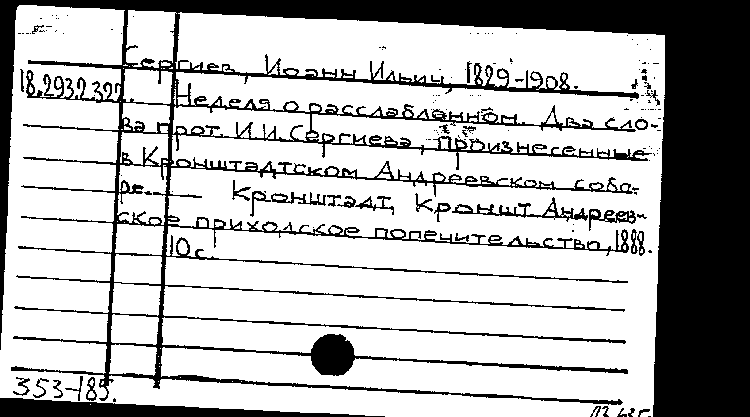 Сергиев, Иоанн Ильич, 1829-1908.
18.293.2.322. Неделя о расслабленном. Два сло-
ва прот. И.И. Сергиева, произнесенные
в Кронштадтском Андреевском собо-
ре... — Кронштадт, Кроншт. Андреев-
ское приходское попечительство, 1888.
10 с.
353-185.